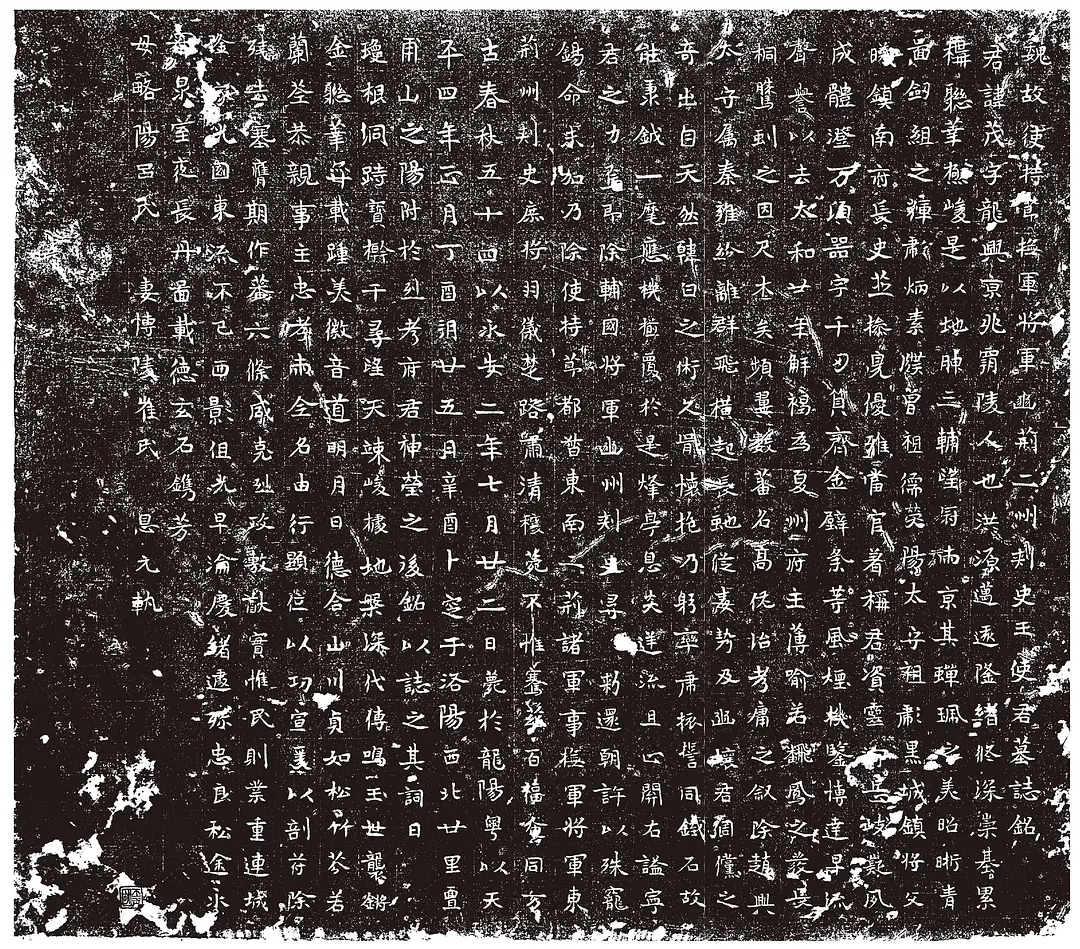 魏故使持節撫軍將軍幽荊二州刺史王使君墓誌銘
君諱茂字龍興京兆霸陵人也洪源邁遠隆緒修深崇基累
構聯華極峻是以地腴三輔望冠兩京其蟬珮之美昭晰青
圖劒組之華彪炳素牒曾祖儒滎陽太守祖彪黑城鎮將父
鎮南府長史並操見優雅當官著稱君資靈夙
成體澄万頃器宇千刃負齊金璧条等風煙機鑒博達早流
聲譽以去太和廿年解褐為夏州府主薄喻若鳳之發長
桐驥到之因尺木矣頻翼數蕃名高佐治考庸之叙除趙興
太守属秦雍紛離群飛橫起長虵從毒勢及幽壤君倜儻之
奇出自天然韓白之術久懷抱乃躬率席捲誓同鐵石故
能秉鉞一麾應機摧覆於是烽息炎迷流且心關右謐寧
君之力焉即除輔國將軍幽州刺史尋勑還朝許以殊寵
錫命未加乃除使持節都督東南二荊諸軍事撫軍將軍東
荊州刺史庶將羽儀楚路肅清不惟騫百福奄同万
古春秋五十四以永安二年七月廿二日薨於龍陽粵以天
平四年正月丁酉朔廿五日辛酉卜窆于洛陽西北廿里亶
甫山之陽附於烈考府君神塋之後銘以誌之其詞曰
瓊根洞跱寳幹千尋望天竦峻據地槃深代傳鳴玉世襲鏘
金聯華弈載踵美徽音道明月日德合山川貞如松竹芬若
蘭荃恭親事主忠孝兩全名由行顯位以功宣爰以剖苻除
殘去塞膺期作蕃六條咸克烈政敷猷實惟民則業重連城
國東流不已西影俱光早淪慶緒遽忠良松途永
泉室夜長丹圖載德玄石鐫芳
母略陽呂氏　妻博陵崔氏　息元軌